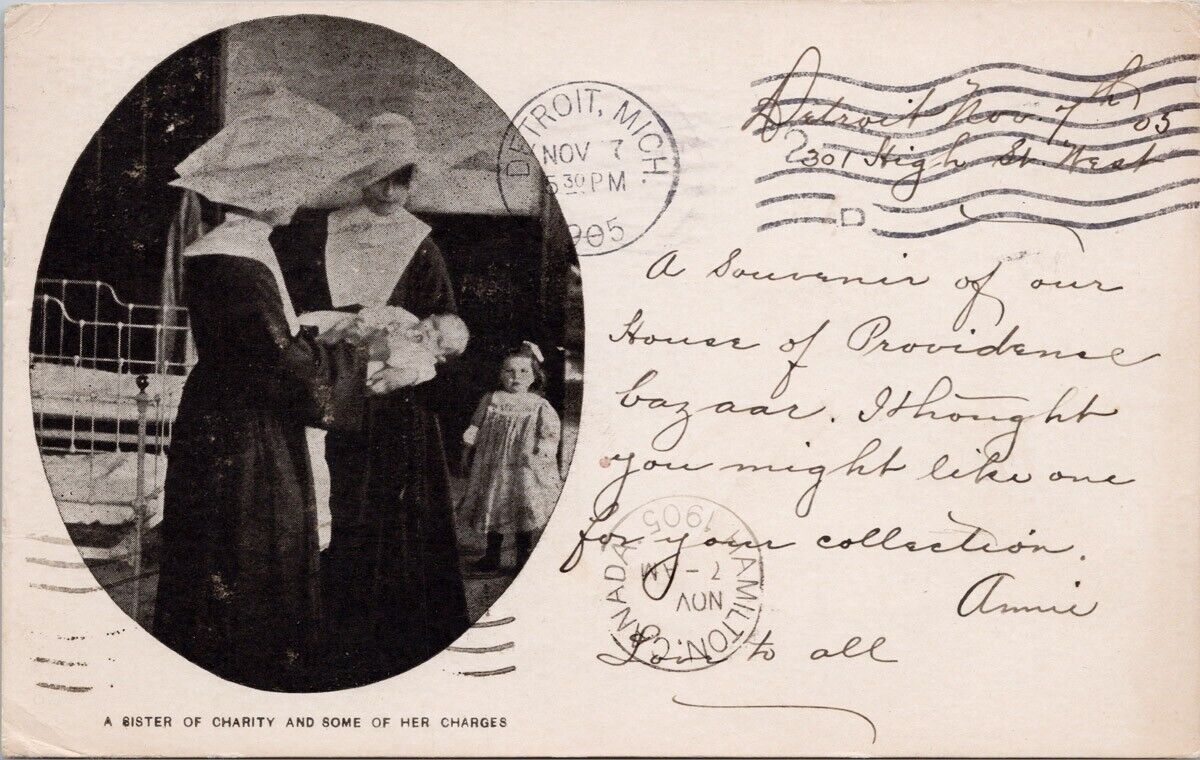 DETROIT, MICH.
NOV 7
5 30 PM
1905
D
Detroit Nov. 7th 05
2301 High St West
A Souvenir of our
House of Providence
bazaar. I thought
you might like one
for your collection.
Annie
Love to all
HAMILTON, CANADA
NOV
7 - AM
1905
A SISTER OF CHARITY AND SOME OF HER CHARGES